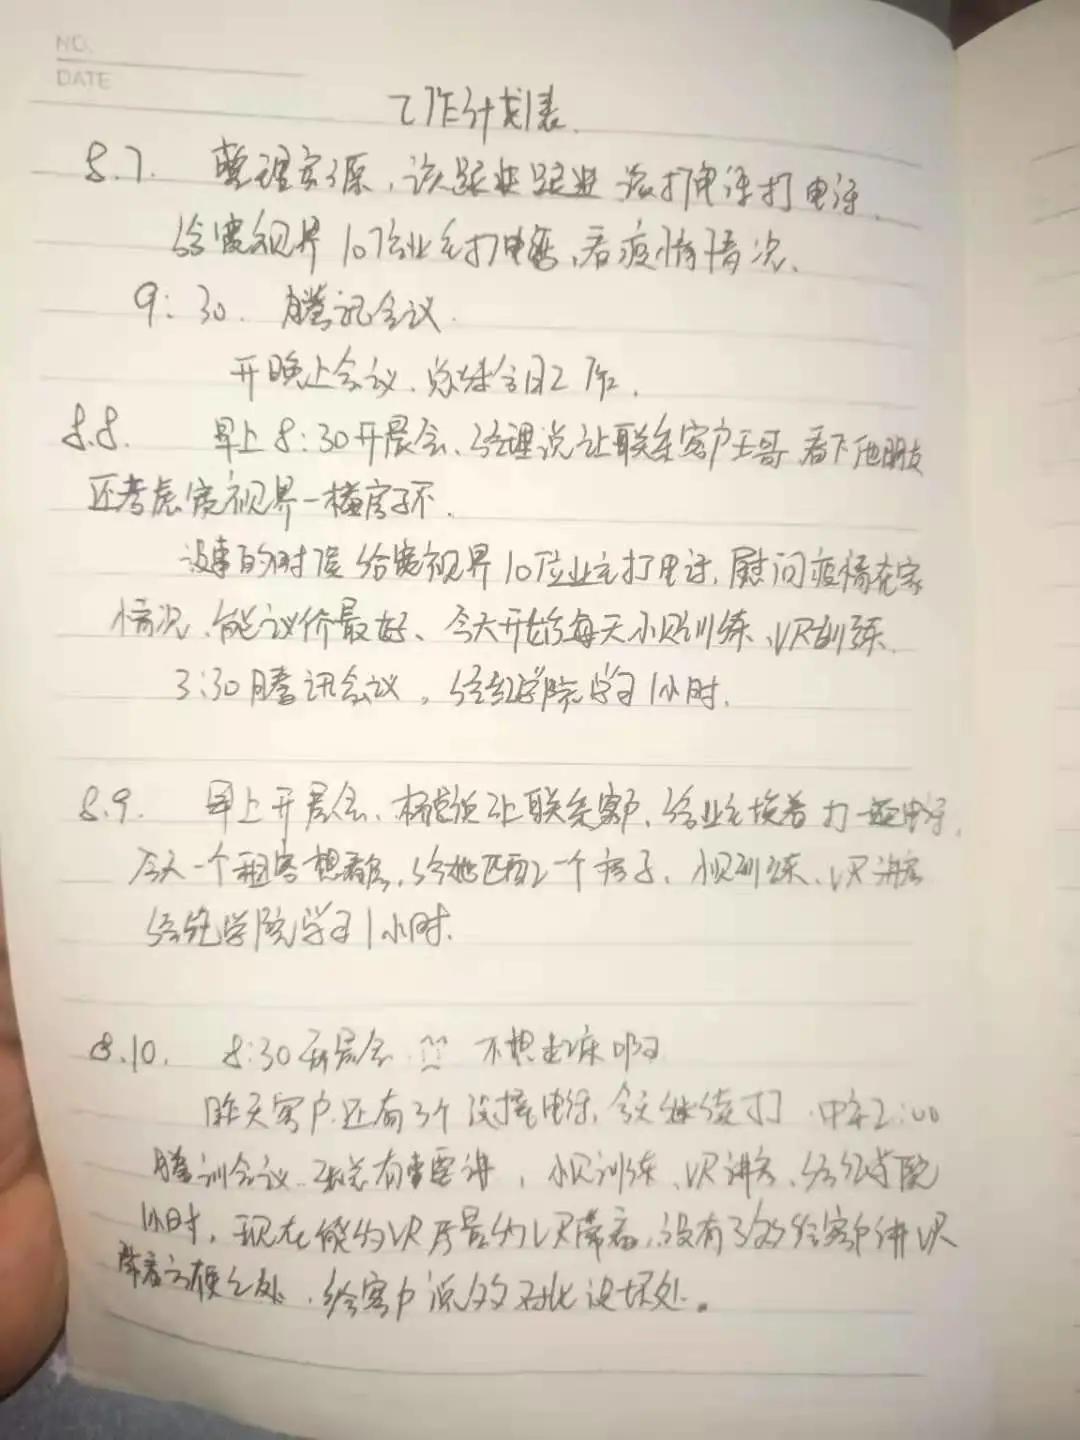 NO.
DATE
工作计划表.
8.7. 整理客源,该跟进跟进 该打电话打电话.
给寰视界10位业主打电话,看疫情情况.
9:30. 腾讯会议.
开晚上会议.总结今日工作.
8.8. 早上8:30开晨会、经理说让联系客户王哥 看下他朋友
还考虑寰视界一楼房子不.
没事的时候 给寰视界10位业主打电话,慰问疫情在家
情况、能议价最好、今天开始每天小贝训练、VR训练.
3:30腾讯会议,经纪学院学习1小时.
8.9. 早上开晨会、说让联系客户、给业主挨着打一遍电话.
今天一个租客想看房,给她匹配一个房子、小贝训练、VR讲房
经纪学院学习1小时.
8.10. 8:30开晨会 不想起床啊
昨天客户还有3个没接电话,今天继续打.中午2:00
腾训会议.有重要讲,小贝训练、VR讲房、经纪学院
1小时,现在能约VR尽量约VR带看,没有的给客户讲VR
带看方便之处、给客户说对比说坏处。